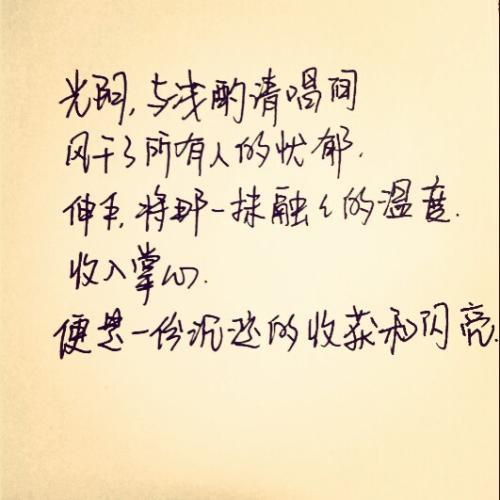 光阴，与浅酌清唱间
风干了所有人的忧郁.
伸手，将那一抹融々的温度.
收入掌心.
便是一份沉迷的收获和闪亮.